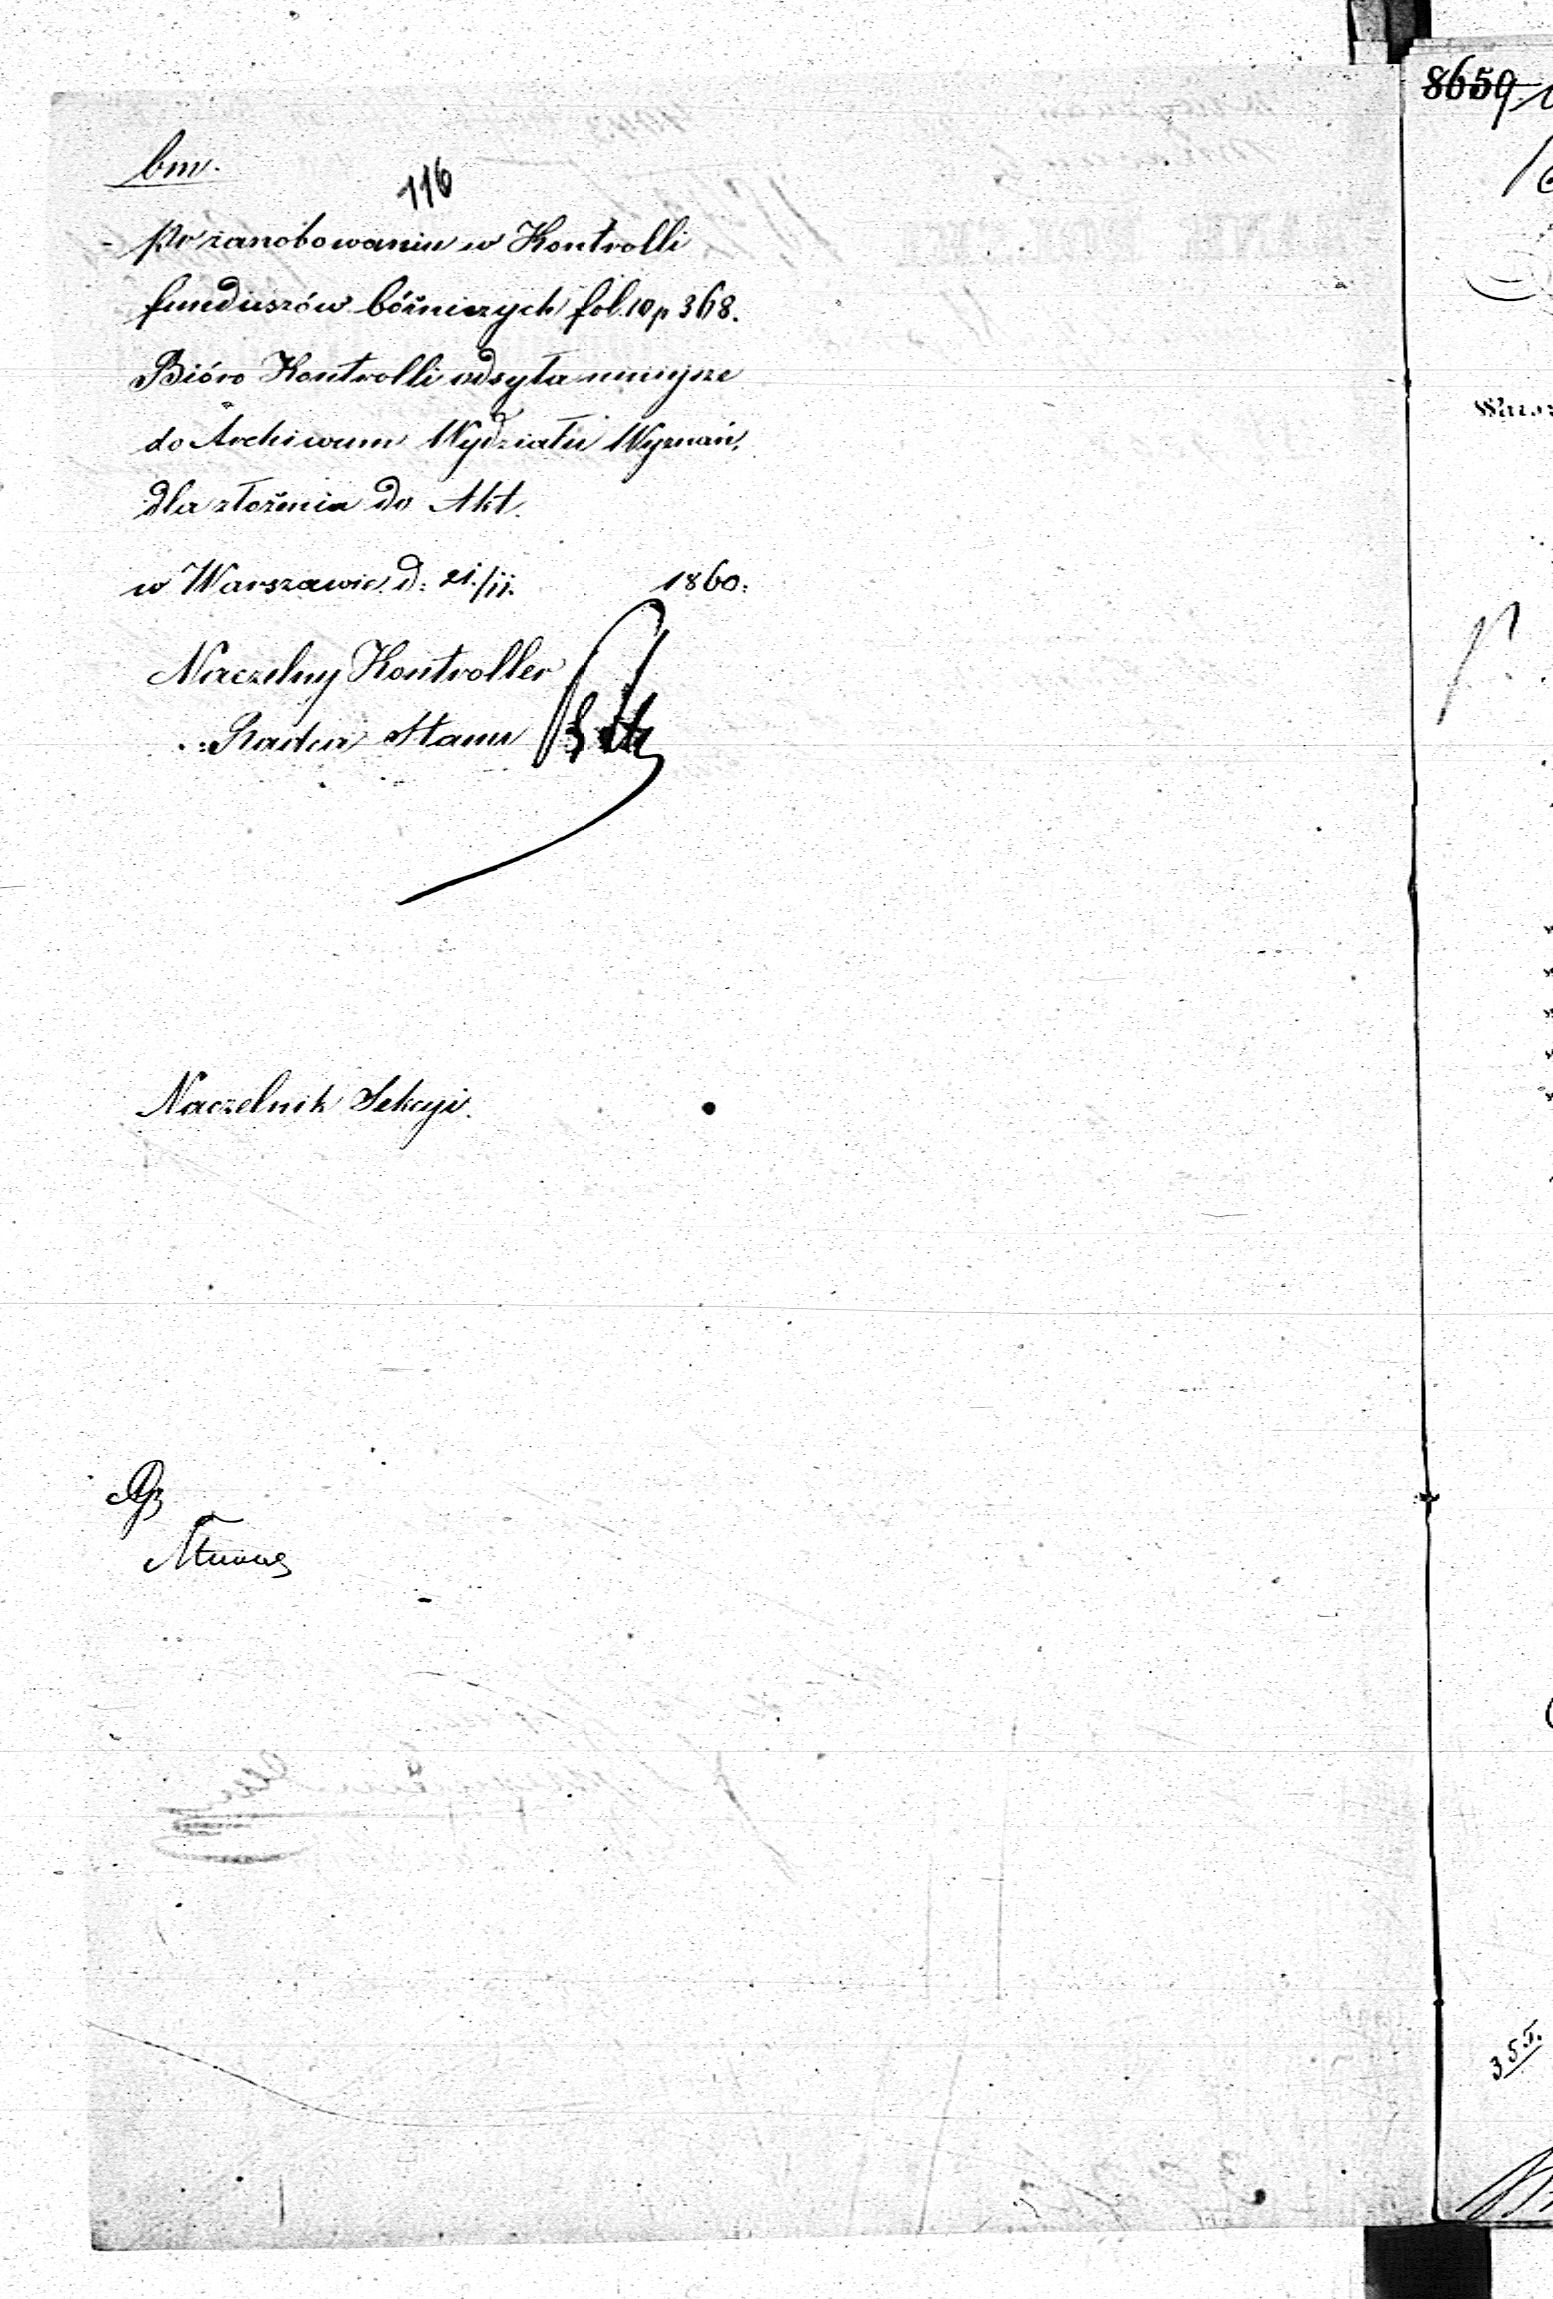 bm.
116
po zanotowaniu w Kontrolli
funduszów bóżniczych fol. 10 p 368.
Bióro Kontrolli odsyła niniejsze
do Archiwum Wydziału Wyznań,
dla złożenia do Akt.
w Warszawie d: 21./11. 1860.
Naczelny Kontroller
Radca Stanu
Naczelnik Sekcyi.
8659
35.